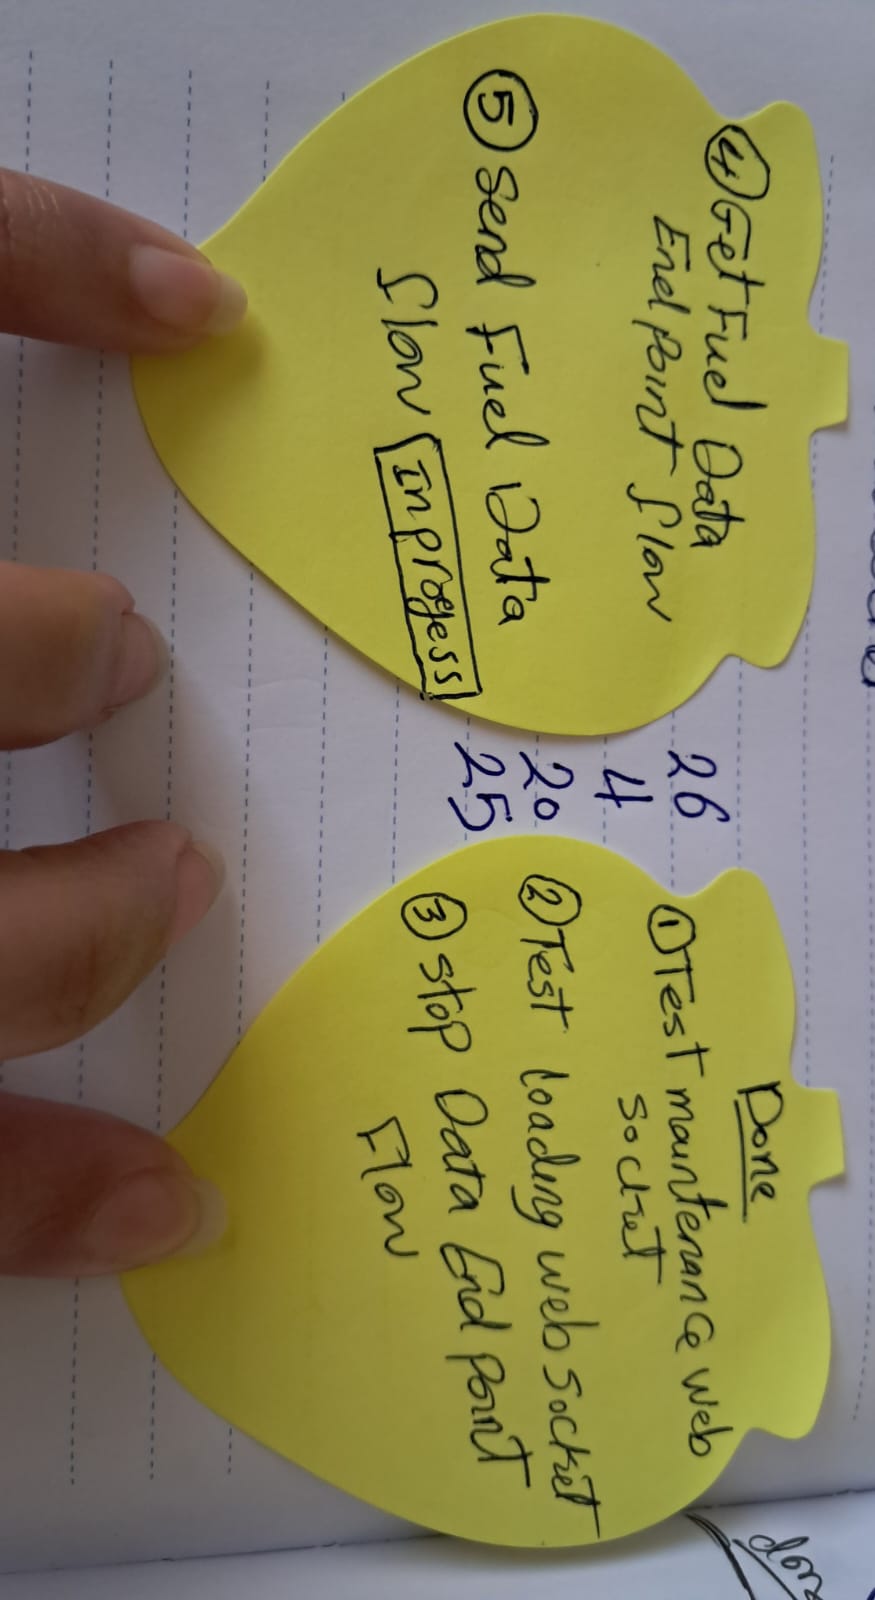 ④ Get Fuel Data
End Point flow
⑤ Send Fuel Data
flow inprogess
26
4
20
25
Done
① Test maintenance web
socket
② Test loading web socket
③ stop Data End Point
Flow